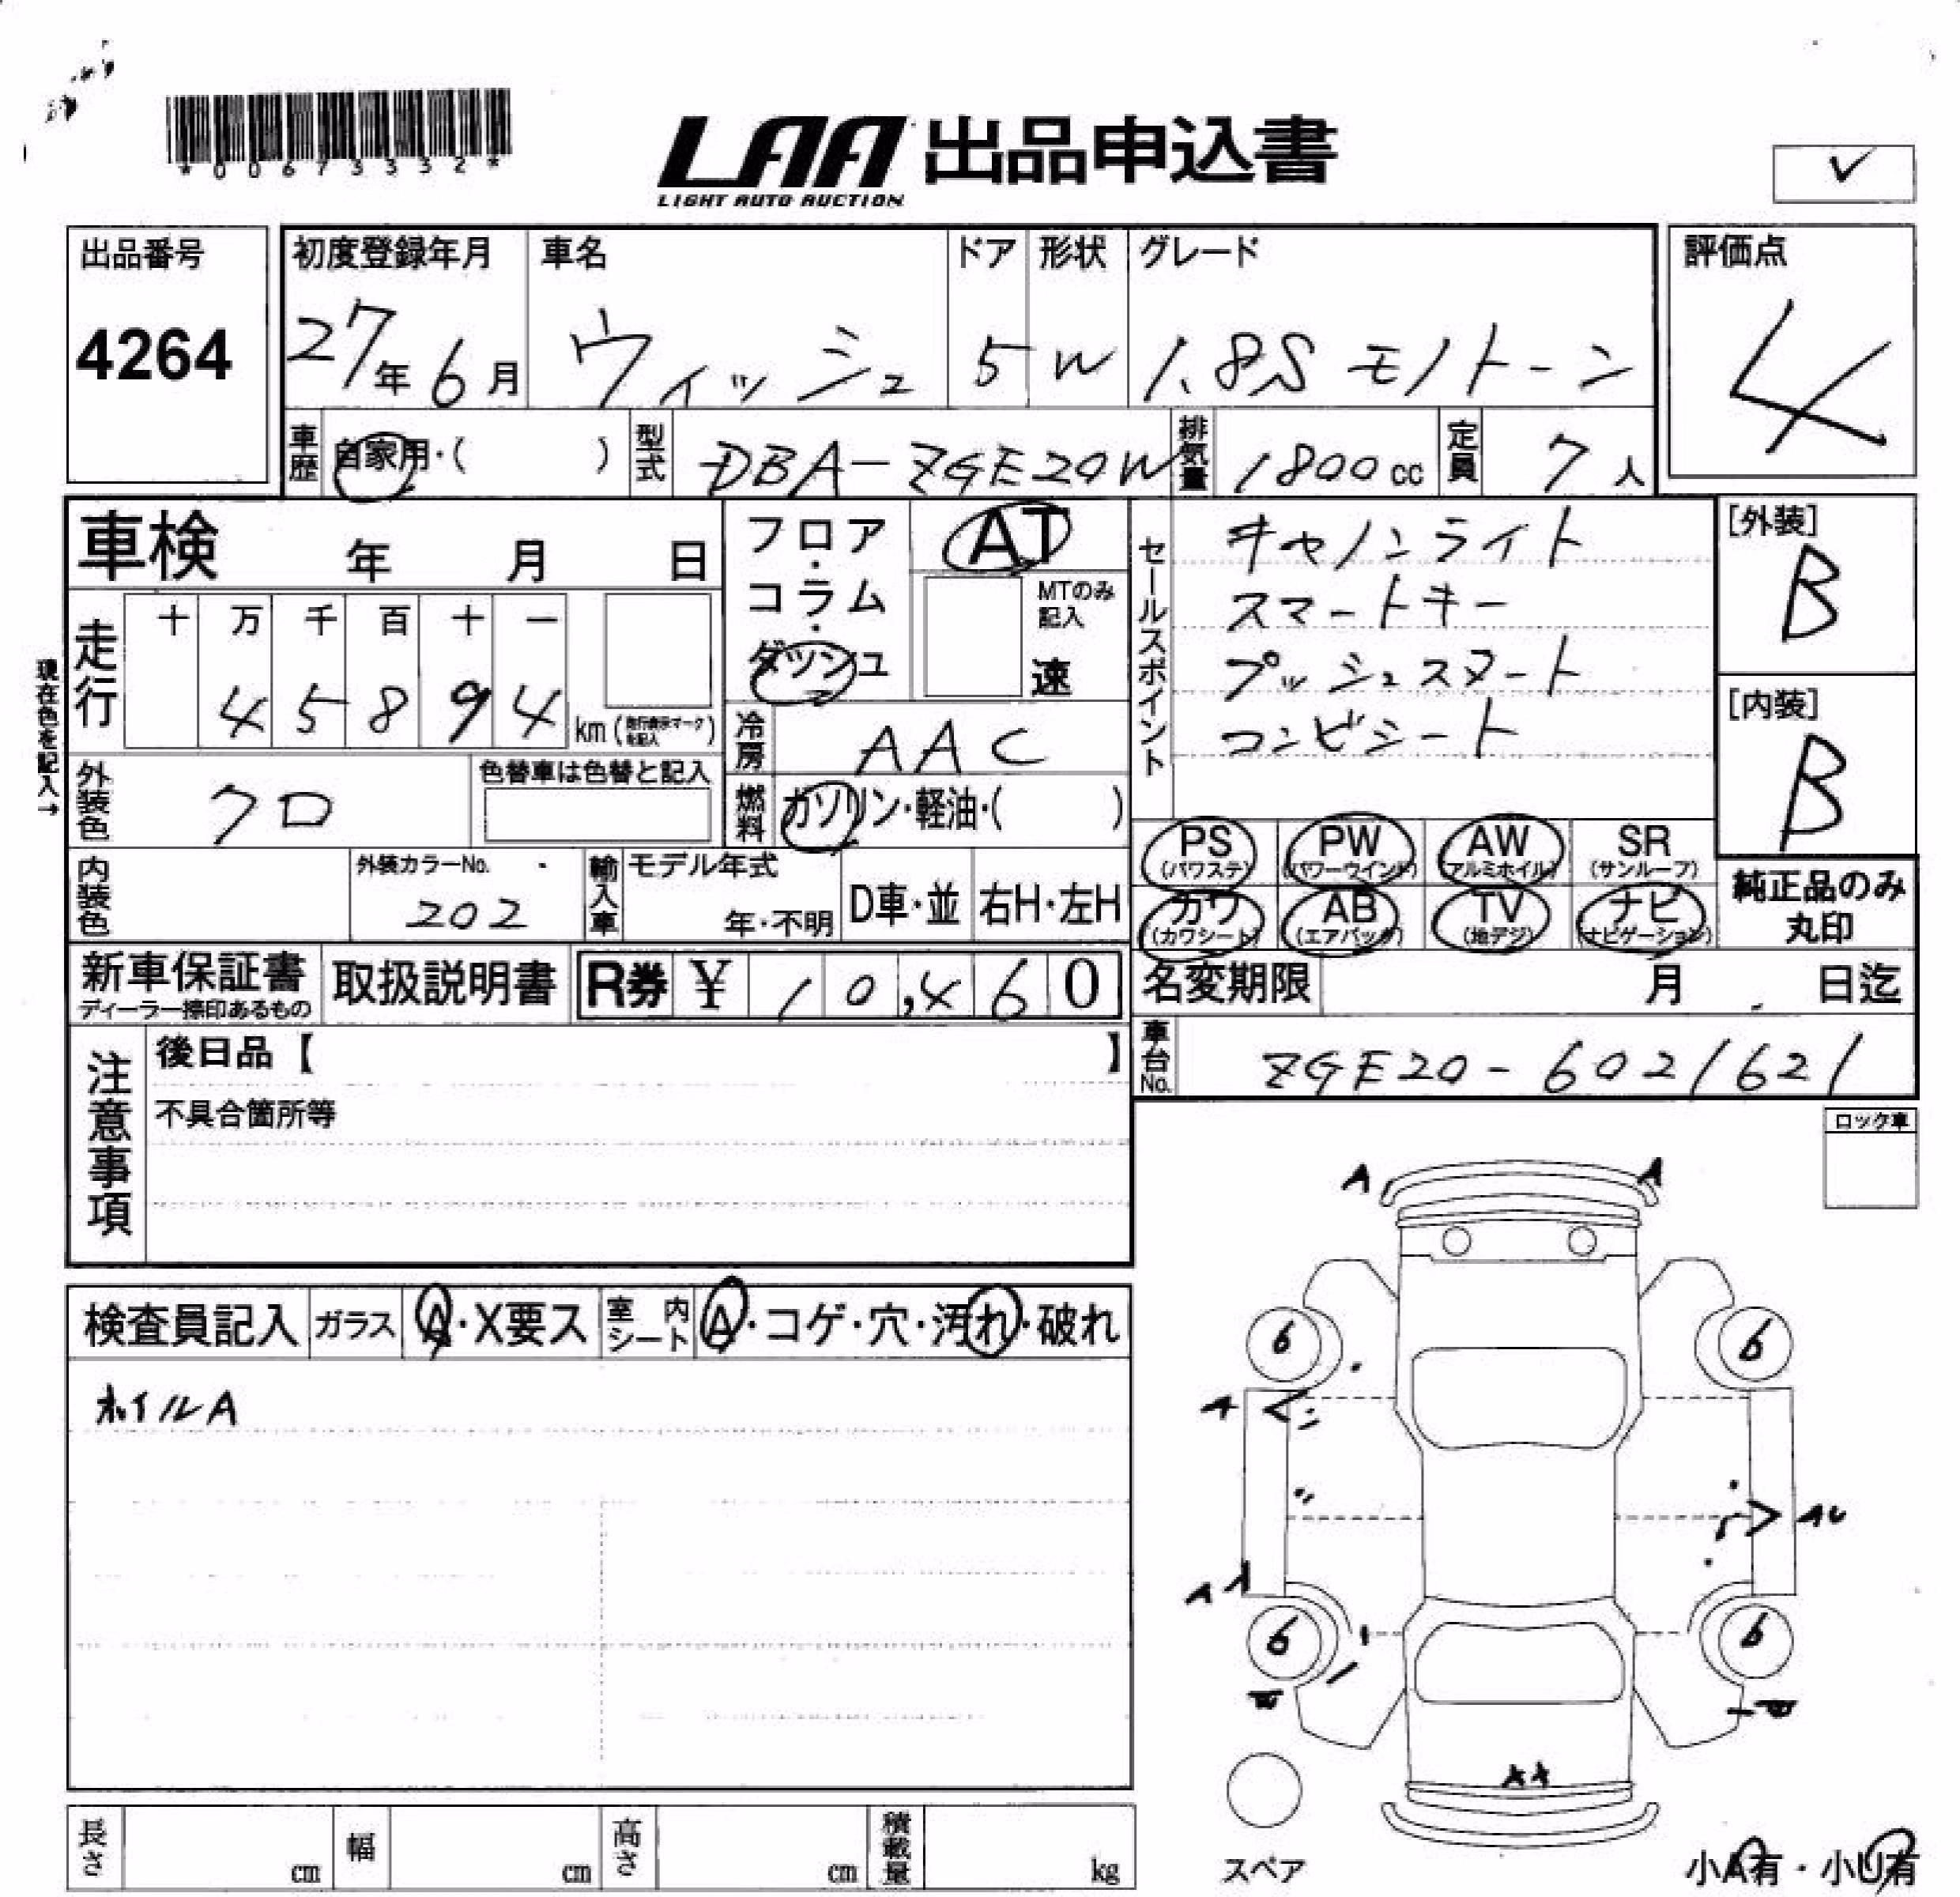 *00673332*
LAA 出品申込書
LIGHT AUTO AUCTION
出品番号 初度登録年月 車名 ドア 形状 グレード 評価点
4264 27年6月 ウィッシュ 5 W 1.8S モノトーン 4
車歴 自家用・( ) 型式 DBA-ZGE20W 排気量 1800cc 定員 7人
車検 年 月 日
フロア・コラム・ダッシュ
AT
MTのみ記入
速
セールスポイント
キャノンライト
スマートキー
プッシュスタート
コンビシート
[外装]
B
[内装]
B
現在色を記入→
走行 十 万 千 百 十 一
4 5 8 9 4 km (走行表示マークを記入)
冷房 AAC
外装色 クロ 色替車は色替と記入
燃料 ガソリン・軽油・( )
PS (パワステ) PW (パワーウインド) AW (アルミホイル) SR (サンルーフ)
カワ (カワシート) AB (エアバック) TV (地デジ) ナビ (ナビゲーション)
純正品のみ丸印
内装色 外装カラーNo. 202 輸入車 モデル年式 年・不明 D車・並 右H・左H
新車保証書 ディーラー捺印あるもの 取扱説明書 R券 ¥ 10,460
名変期限 月 日迄
車台No. ZGE20-6021621
注意事項
後日品【 】
不具合箇所等
ロック車
A A
検査員記入 ガラス A・X要ス 室内シート A・コゲ・穴・汚れ・破れ
ホイルA
6 6
A
AU
A
6 6
スペア
小A有・小U有
長さ cm 幅 cm 高さ cm 積載量 kg